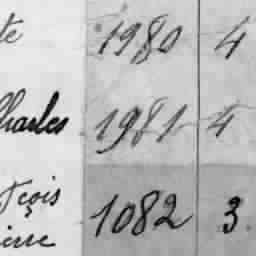 te 1980 4
Charles 1981 4
çois
1082 3